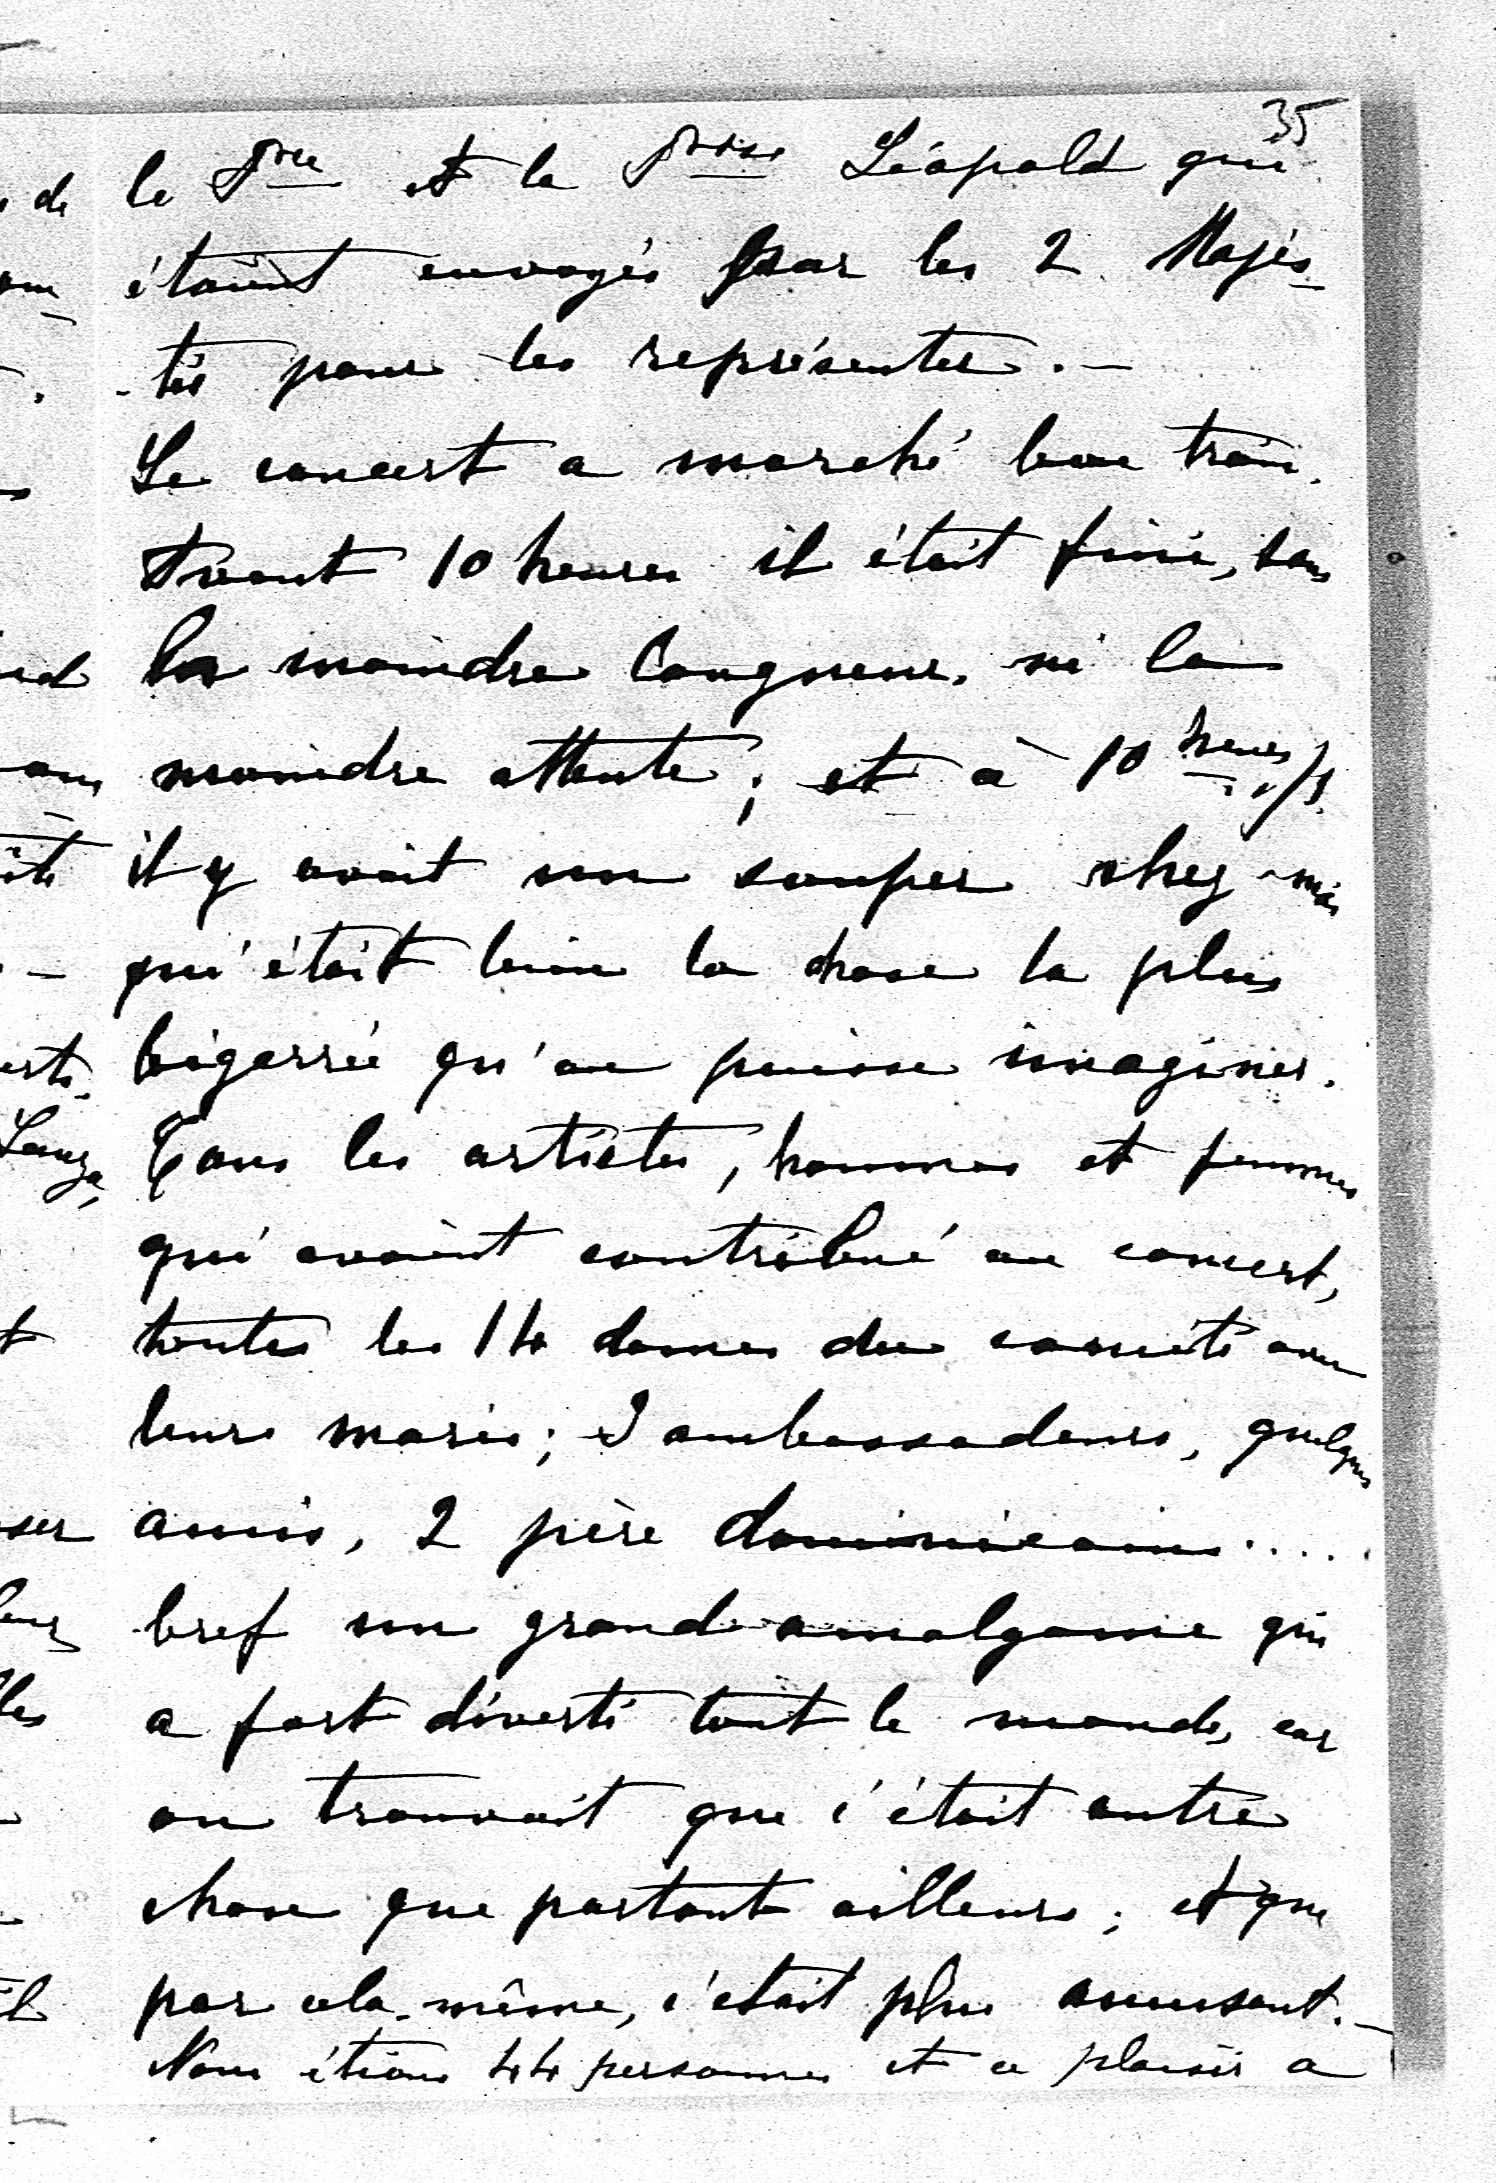 35
le Pce et la Psse Léopold qui
étaient envoyés par les 2 Majes-
-tés pour les représenter.-
Le concert a marché bon train.
Avant 10 heures il était fini, sans
la moindre longueur, ni la
moindre attente; et à 10 heures 1/2
il y avait un souper chez moi
qui était bien la chose la plus
bigarrée qu'on puisse imaginer.
Tous les artistes, hommes et femmes
qui avaient contribué au concert,
toutes les 14 dames du comité avec
leurs maris; 2 ambassadeurs, quelques
amis, 2 père dominicains.....
bref un grand amalgame qui
a fort diverti tout le monde, car
on trouvait que c'était autre
chose que partout ailleurs; et que
par cela-même, c'était plus amusant.-
Nous étions 44 personnes et ce plaisir a